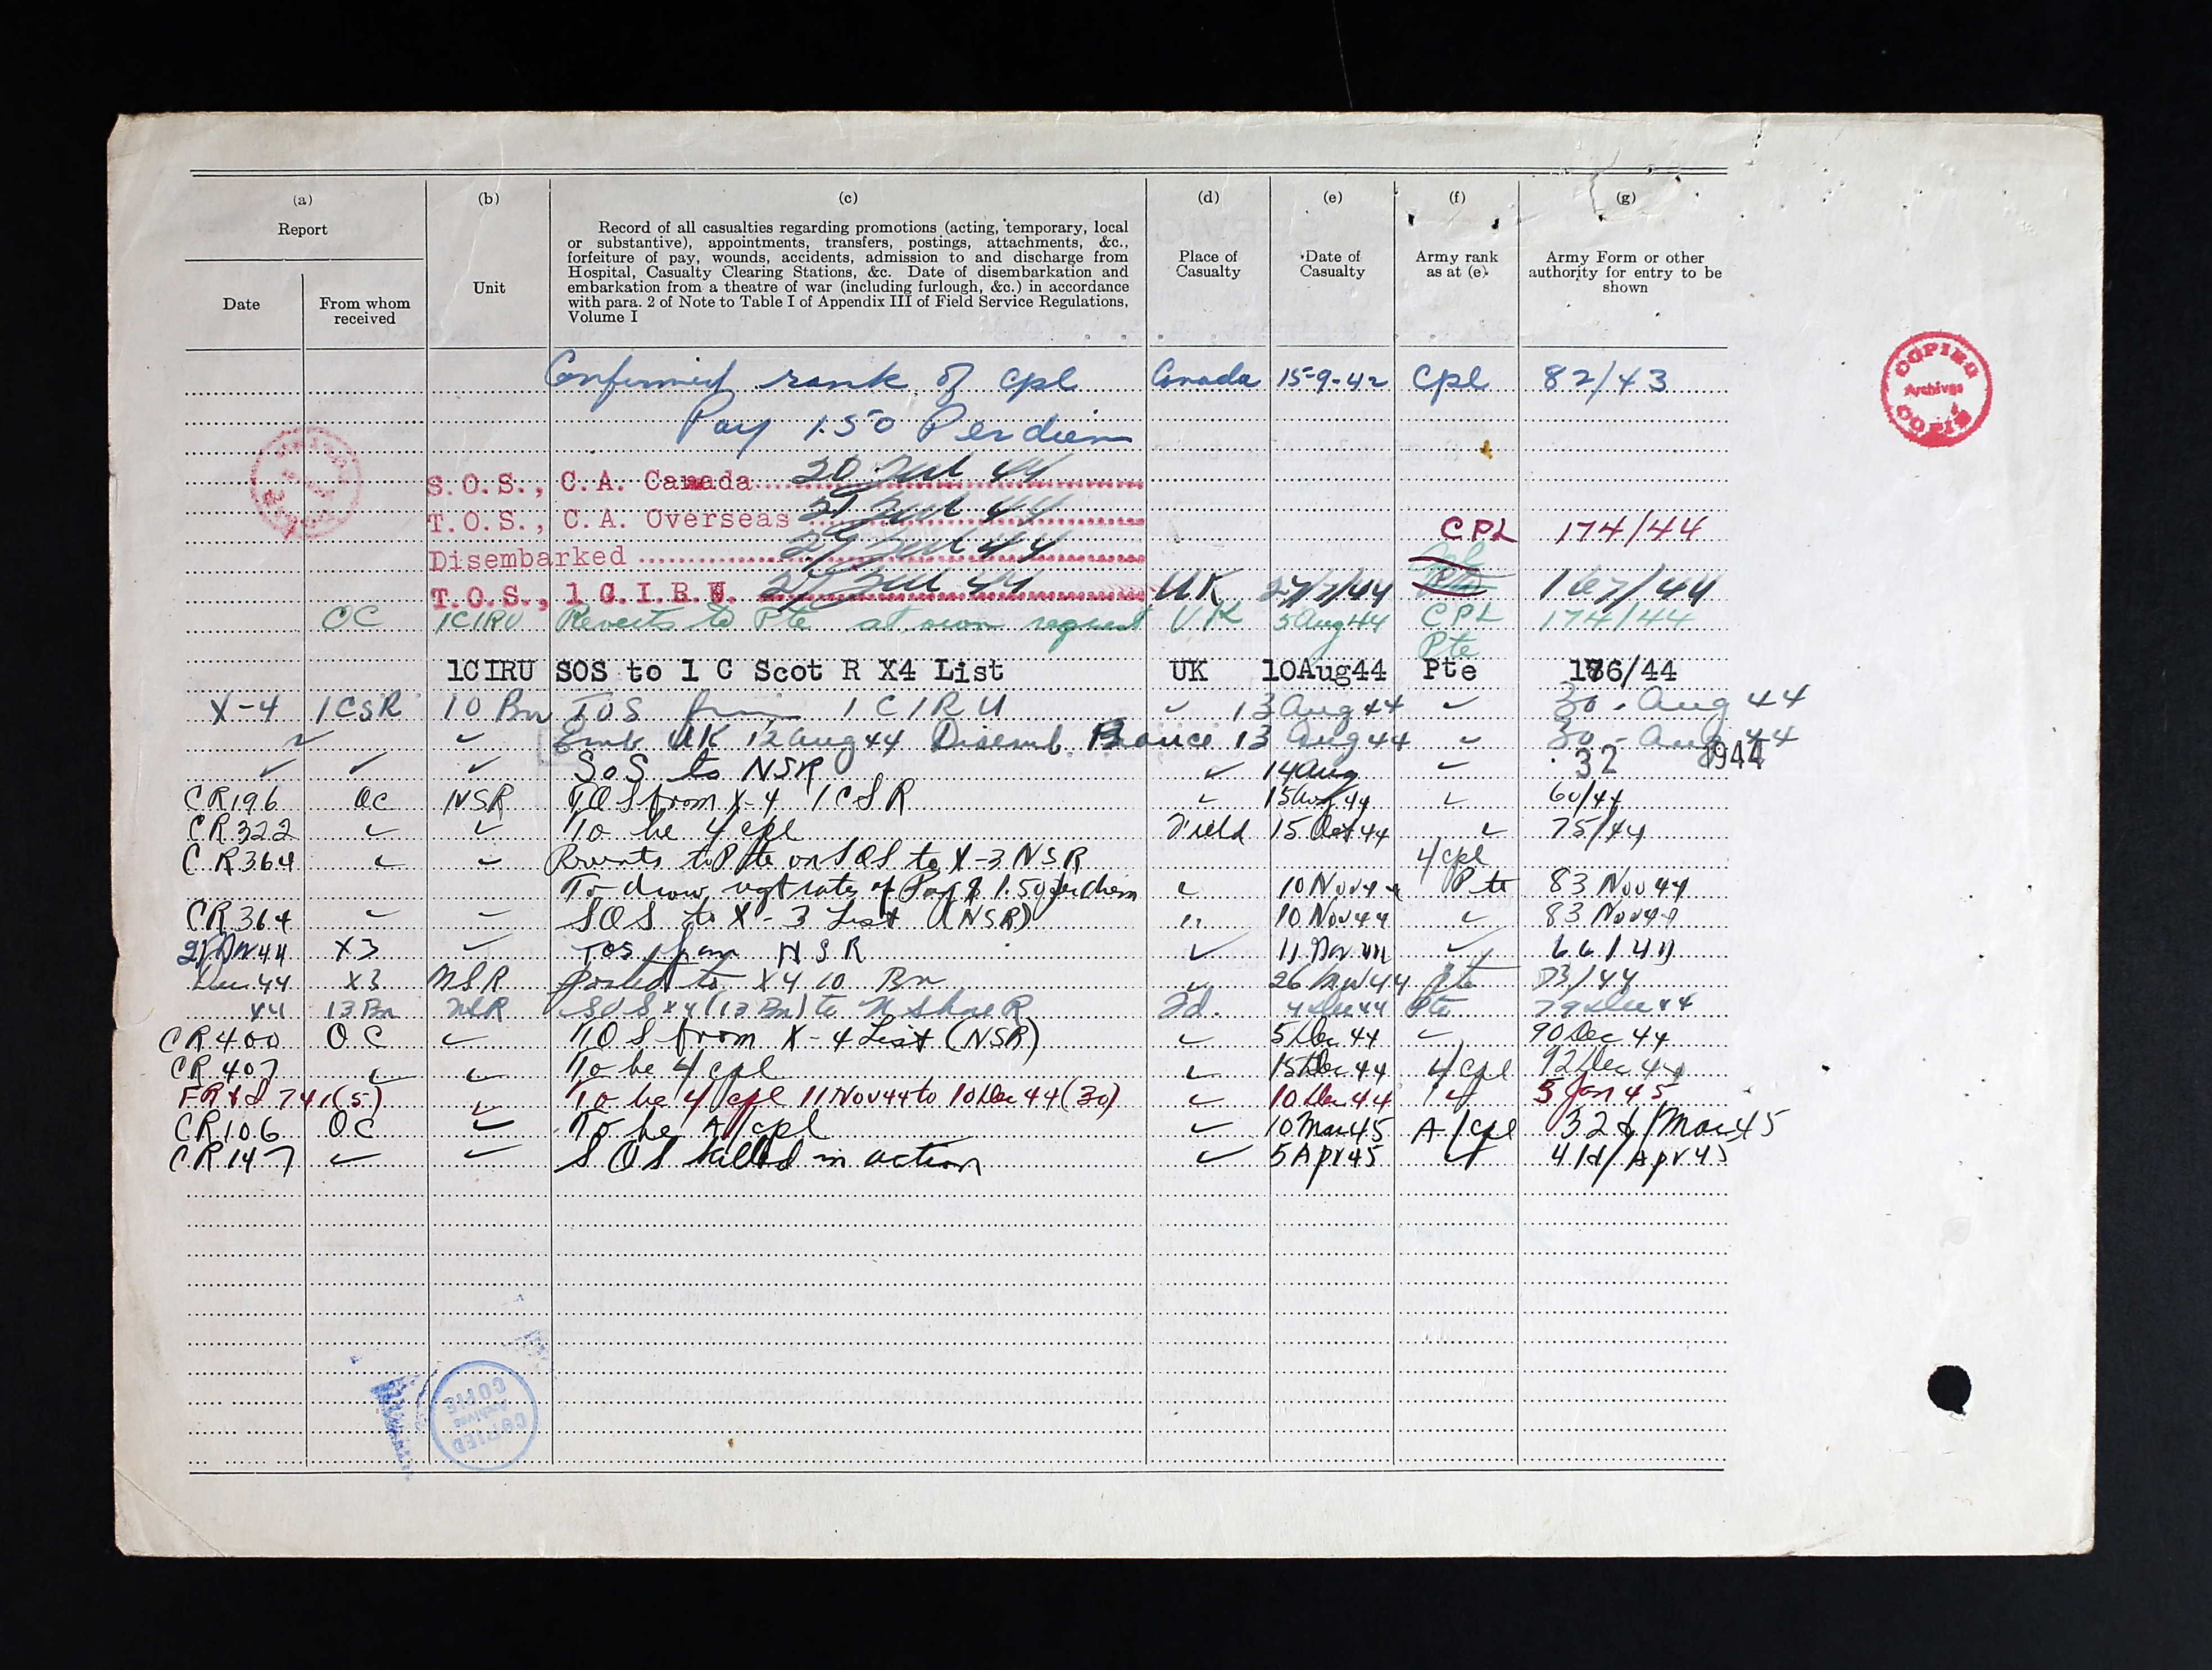 (a) (b) (c) (d) (e) (f) (g)
Report
Date
From whom
received
Unit
Record of all casualties regarding promotions (acting, temporary, local
or substantive), appointments, transfers, postings, attachments, &c.,
forfeiture of pay, wounds, accidents, admission to and discharge from
Hospital, Casualty Clearing Stations, &c. Date of disembarkation and
embarkation from a theatre of war (including furlough, &c.) in accordance
with para. 2 of Note to Table I of Appendix III of Field Service Regulations,
Volume I
Place of
Casualty
Date of
Casualty
Army rank
as at (e)
Army Form or other
authority for entry to be
shown
Confirmed rank of cpl Canada 15-9-42 Cpl 82/43
Pay 1.50 Per diem
S.O.S., C.A. Canada 20 Jul 44
T.O.S., C.A. Overseas 21 Jul 44 CPL 174/44
Disembarked 27 Jul 44
T.O.S., 1 C.I.R.U. 27 Jul 44 UK 27/7/44 167/44
OC 1CIRU Reverts to Pte at own request UK 5 Aug 44 CPL 174/44
Pte
1CIRU SOS to 1 C Scot R X4 List UK 10Aug44 Pte 176/44
X-4 1CSR 10 Bn TOS from 1 C I R U ✓ 13 Aug 44 ✓ 30 - Aug 44
✓ ✓ Emb UK 12 Aug 44 Disemb. France 13 Aug 44 ✓ 30 - Aug 44
✓ ✓ ✓ SoS to NSR ✓ 14 Aug ✓ 32 1944
CR196 OC NSR TOS from X-4 1CSR ✓ 15 Aug 44 ✓ 60/44
CR322 ✓ ✓ To be L/cpl Field 15 Oct 44 ✓ 75/44
CR364 ✓ ✓ Reverts to Pte on SOS to X-3 NSR L/cpl
To draw rate of Pay $1.50 per diem ✓ 10 Nov 44 Pte 83 Nov 44
CR364 ✓ ✓ SOS to X-3 List (NSR) ✓ 10 Nov 44 ✓ 83 Nov 44
X3 ✓ TOS from NSR ✓ 11 Nov 44 ✓ 66/44
Dec 44 X3 NSR posted to X4 10 Bn ✓ 26 Nov 44 Pte 73/44
44 13 Bn NSR SOS X4 (13 Bn) to N Shore R Fd. 4 Dec 44 Pte 79 Dec 44
CR400 OC ✓ TOS from X-4 List (NSR) ✓ 5 Dec 44 ✓ 90 Dec 44
CR 407 ✓ ✓ To be L/cpl ✓ 15 Dec 44 L/cpl 92 Dec 44
741(5) ✓ To be L/cpl 11 Nov 44 to 10 Dec 44 (30) ✓ 10 Dec 44 ✓ 5 Jan 45
CR106 OC ✓ To be A/cpl ✓ 10 Mar 45 A/cpl 32 Mar 45
CR147 ✓ ✓ SOS killed in action ✓ 5 Apr 45 ✓ 41 Apr 45
COPIED
Archives
COPIE
COPIED
Archives
COPIE